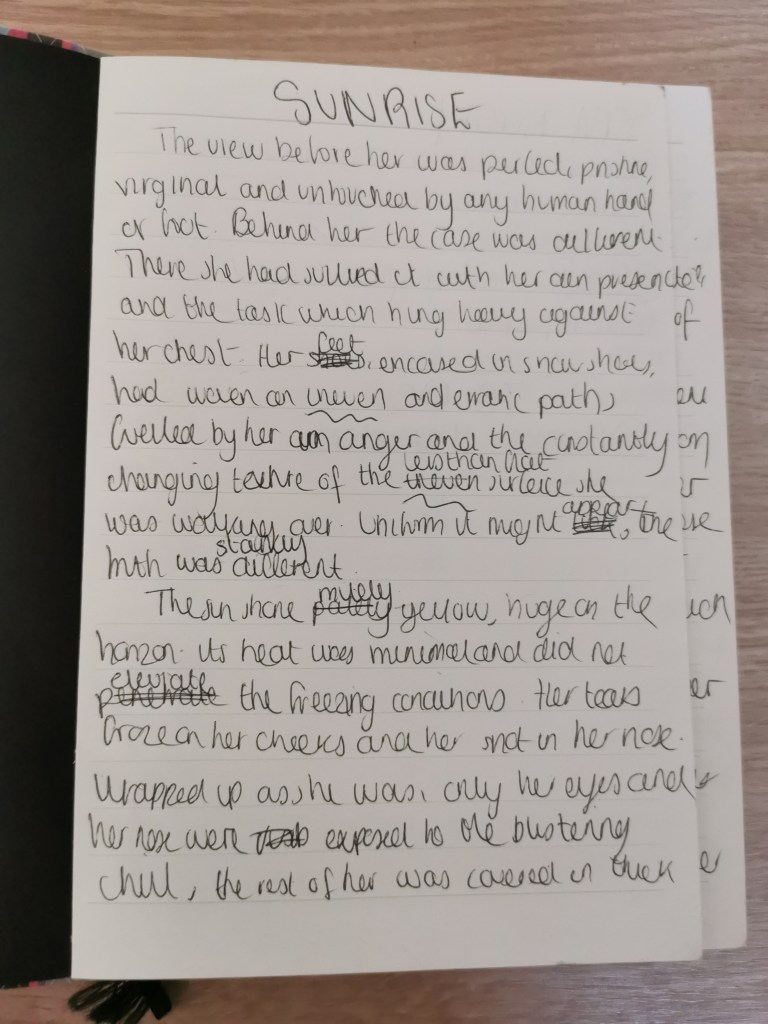 SUNRISE
The view before her was perfect, pristine,
virginal and untouched by any human hand
or foot. Behind her the case was different.
There she had sullied it with her own presence
and the task which hung heavy against
her chest. Her feet, encased in snow shoes,
had woven an uneven and erratic path,
fuelled by her own anger and the constantly
changing texture of the less than flat surface she
was walking over. Uniform it might appear, the
truth was starkly different.
The sun shone yellow, huge on the
horizon. Its heat was minimal and did not
the freezing conditions. Her tears
froze on her cheeks and her snot in her nose.
Wrapped up as she was, only her eyes and
her nose were exposed to the blustering
chill, the rest of her was covered in thick
of
er